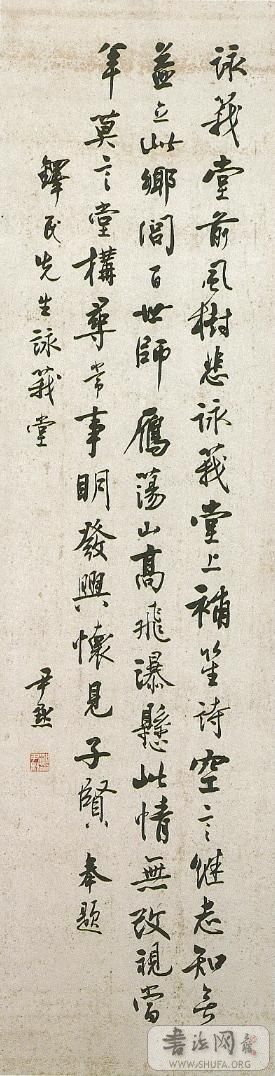 詠莪堂前風樹悲詠莪堂上補笙詩空言繼志知無
益立此鄉閭百世師鴈蕩山高飛瀑懸此情無改視當
年莫言堂構尋常事明發興懷見子賢奉題
鐸民先生詠莪堂
尹默
書法网
WWW.SHUFA.ORG